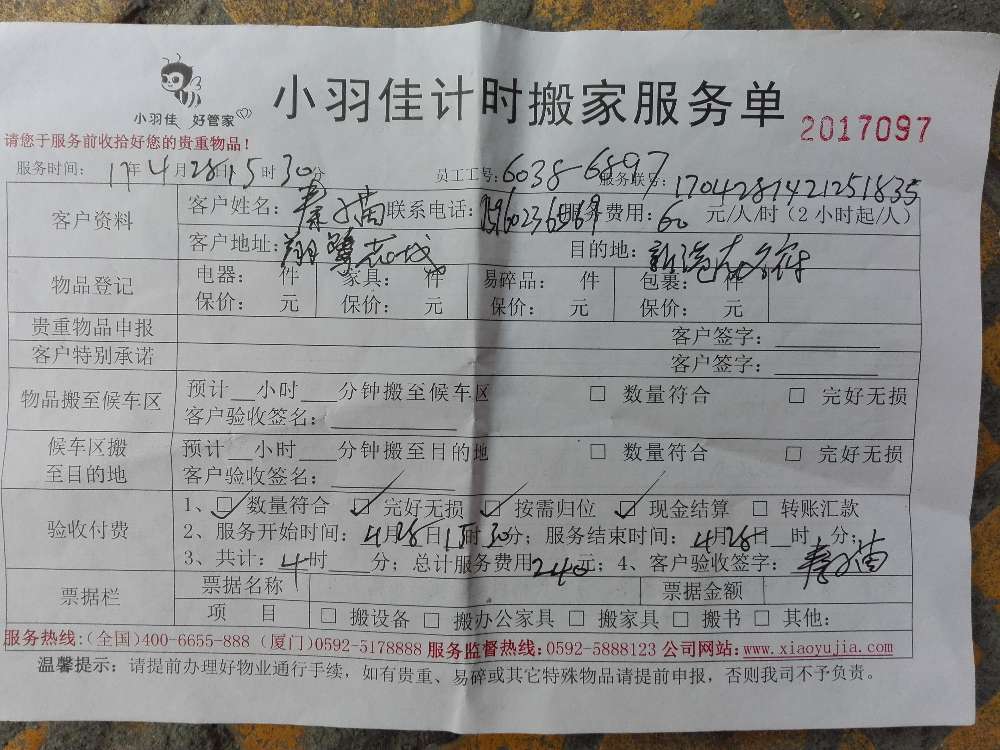 小羽佳 好管家
小羽佳计时搬家服务单
2017097
请您于服务前收拾好您的贵重物品！
服务时间： 17年4月28日15时30分 员工工号：6038-6897 服务联号：170428142125183​5
客户资料 客户姓名： 联系电话： 服务费用：60 元/人/时（2小时起/人）
客户地址：翔鹭花城 目的地：新港
物品登记 电器： 件 家具： 件 易碎品： 件 包裹： 件
保价： 元 保价： 元 保价： 元 保价： 元
贵重物品申报 客户签字：
客户特别承诺 客户签字：
物品搬至候车区 预计__小时___分钟搬至候车区 □ 数量符合 □ 完好无损
客户验收签名：
候车区搬至目的地 预计__小时___分钟搬至目的地 □ 数量符合 □ 完好无损
客户验收签名：
验收付费 1、☑数量符合 ☑完好无损 ☑按需归位 ☑现金结算 □转账汇款
2、服务开始时间：4月28日15时30分；服务结束时间：4月28日__时__分；
3、共计：4时___分；总计服务费用240元；4、客户验收签字：
票据栏 票据名称 票据金额
项 目 □ 搬设备 □ 搬办公家具 □ 搬家具 □ 搬书 □ 其他：
服务热线：（全国）400-6655-888（厦门）0592-5178888 服务监督热线：0592-5888123 公司网站：www.xiaoyujia.com
温馨提示：请提前办理好物业通行手续，如有贵重、易碎或其它特殊物品请提前申报，否则我司不予负责。